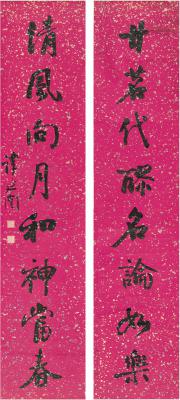 甘茗代醪名論如樂
清風向月和神當春